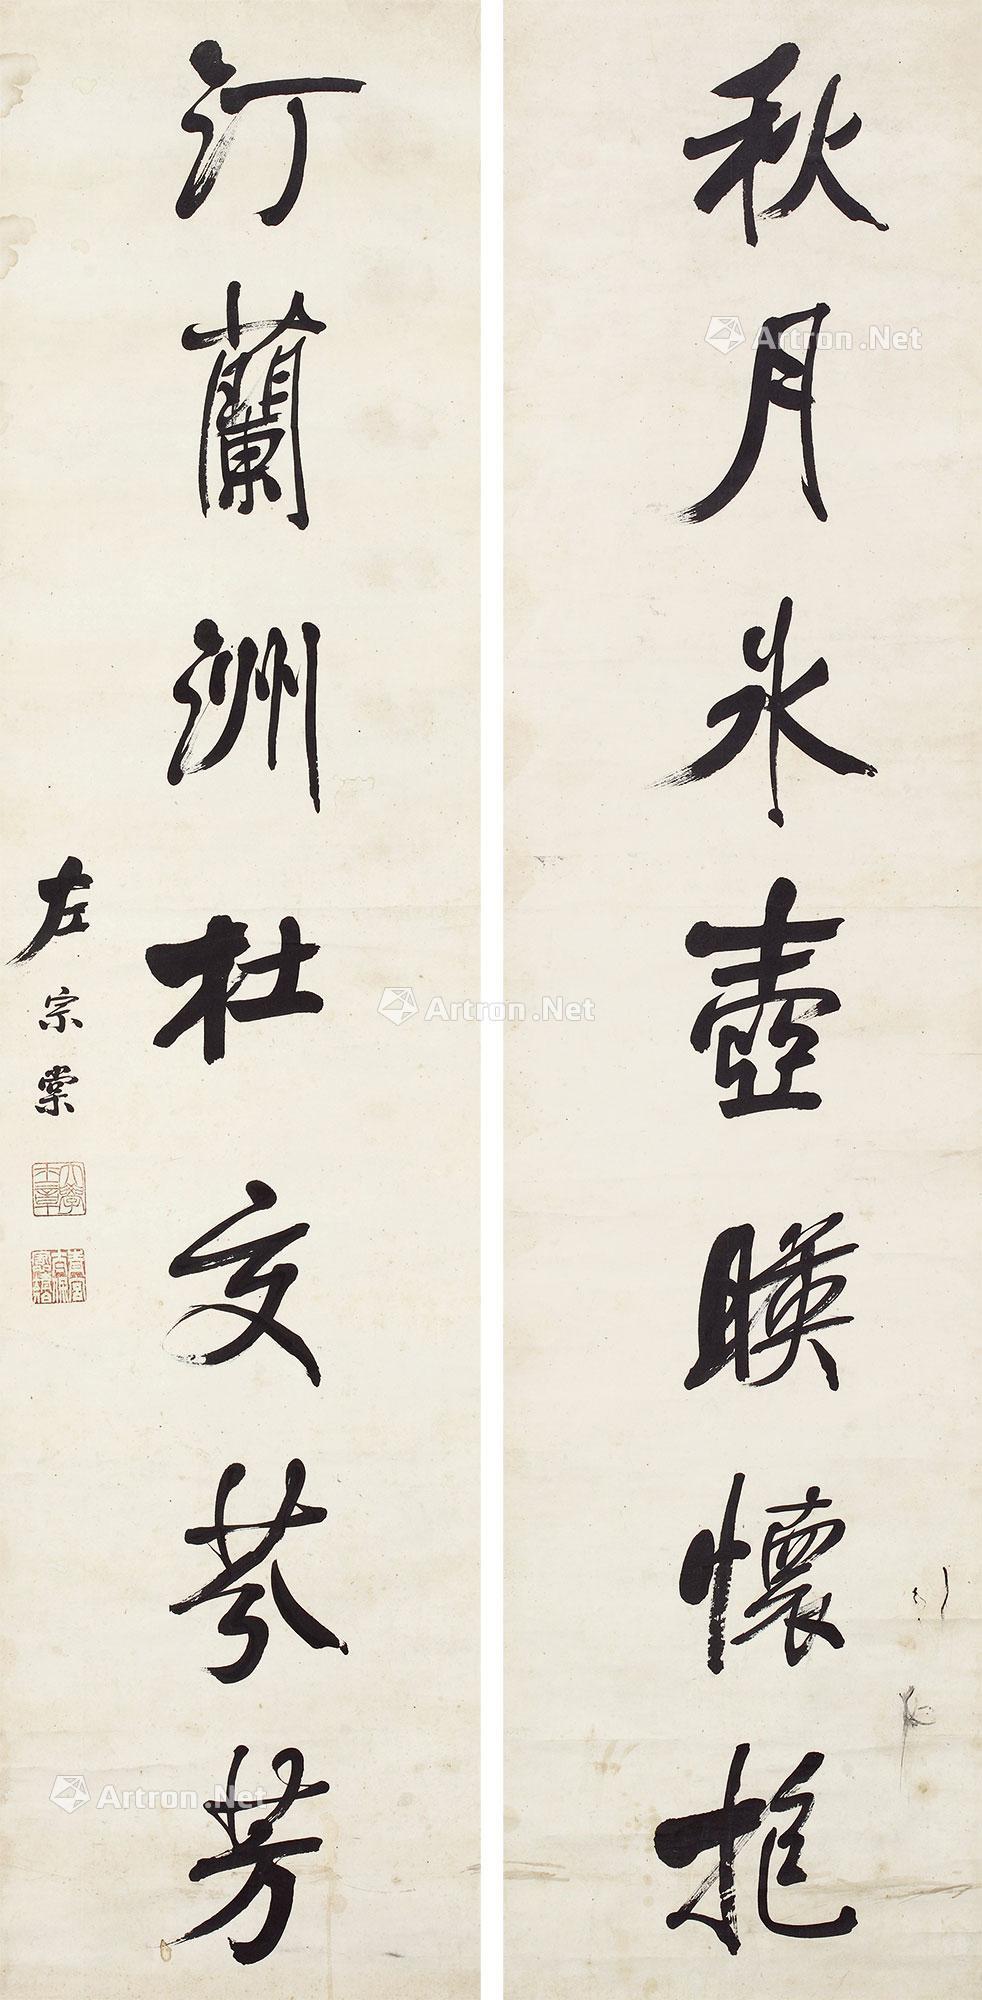 秋月冰壺暎懷抱
汀蘭洲杜交芬芳
左宗棠
Artron.Net
Artron.Net
Artron.Net